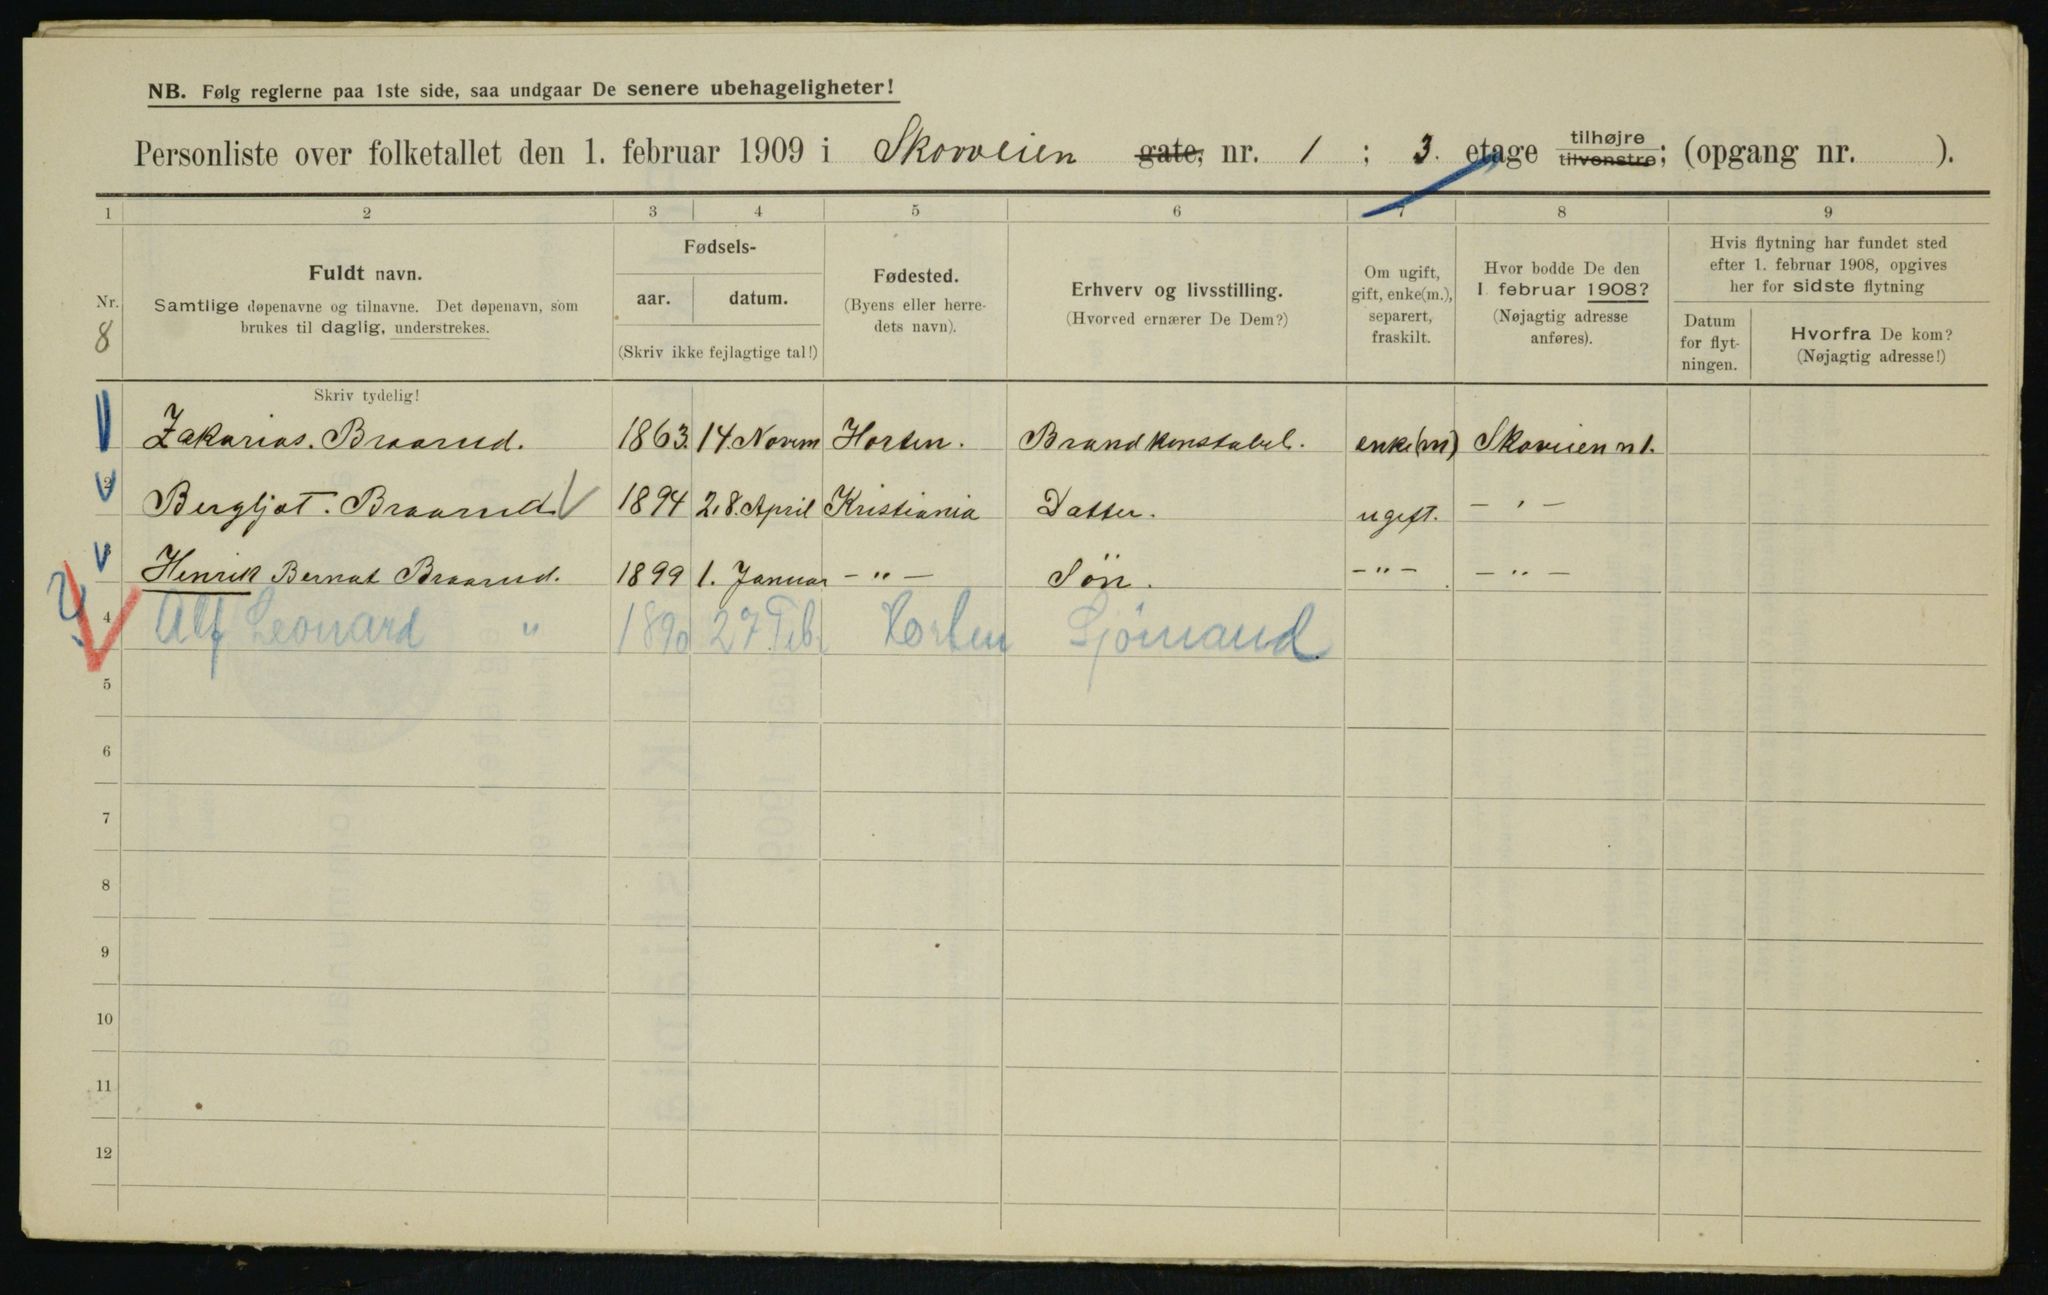 NB. Følg reglerne paa 1ste side, saa undgaar De senere ubehageligheter!
Personliste over folketallet den 1. februar 1909 i Skovveien gate, nr. 1 ; 3. etage tilhøjre tilvenstre; (opgang nr. ).
1 2 3 4 5 6 7 8 9
Nr. 8
Fuldt navn.
Samtlige døpenavne og tilnavne. Det døpenavn, som
brukes til daglig, understrekes.
Skriv tydelig!
Fødsels-
aar. datum.
(Skriv ikke fejlagtige tal!)
Fødested.
(Byens eller herre-
dets navn).
Erhverv og livsstilling.
(Hvorved ernærer De Dem?)
Om ugift,
gift, enke(m.),
separert,
fraskilt.
Hvor bodde De den
1 februar 1908?
(Nøjagtig adresse
anføres).
Hvis flytning har fundet sted
efter 1. februar 1908, opgives
her for sidste flytning
Datum
for flyt-
ningen.
Hvorfra De kom?
(Nøjagtig adresse!)
Zakarias. Braarud. 1863. 14. Novem Horten. Brandkonstabel. enke(m) Skoveien n 1.
2 Bergljot. Braarud 1894 28. April Kristiania Datter. ugift. - " -
3 Henrik Bernat Braarud. 1899 1. Januar - " - Søn. - " - - " -
4 Alf Leonard " 1890 27 Feb. Horten Sjømand
5
6
7
8
9
10
11
12